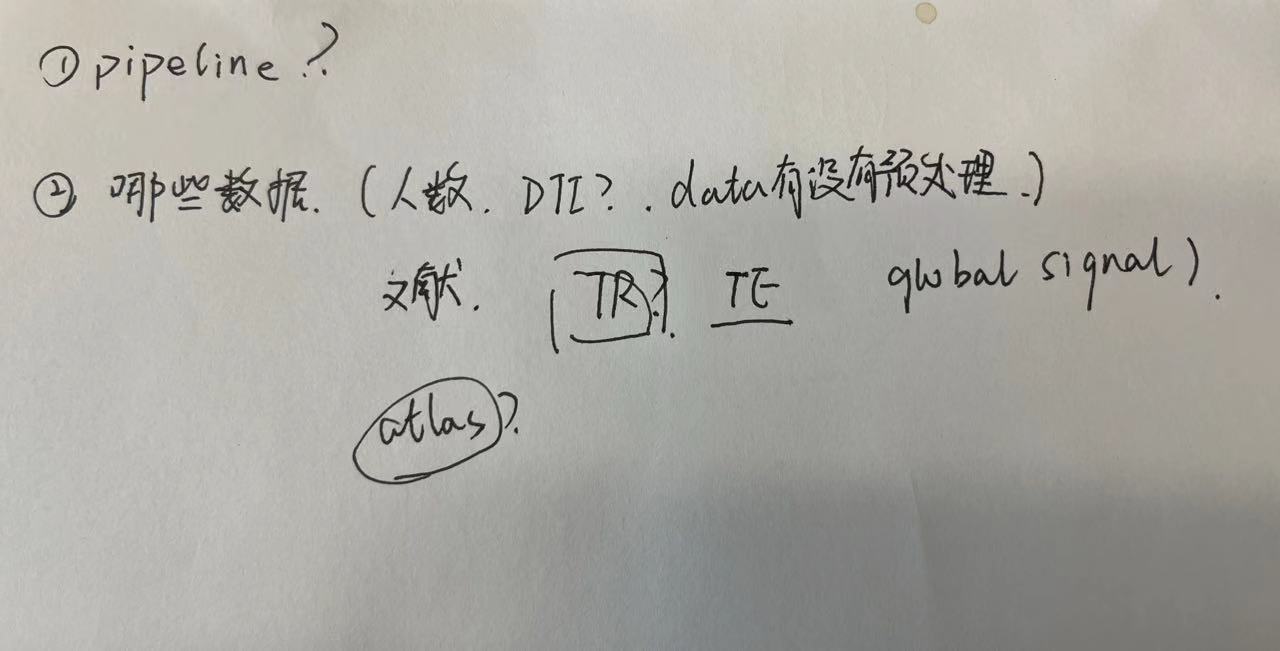 ① pipeline?
② 哪些数据.(人数. DTI?. data有没有预处理.)
文献. TR?. TE global signal).
atlas?